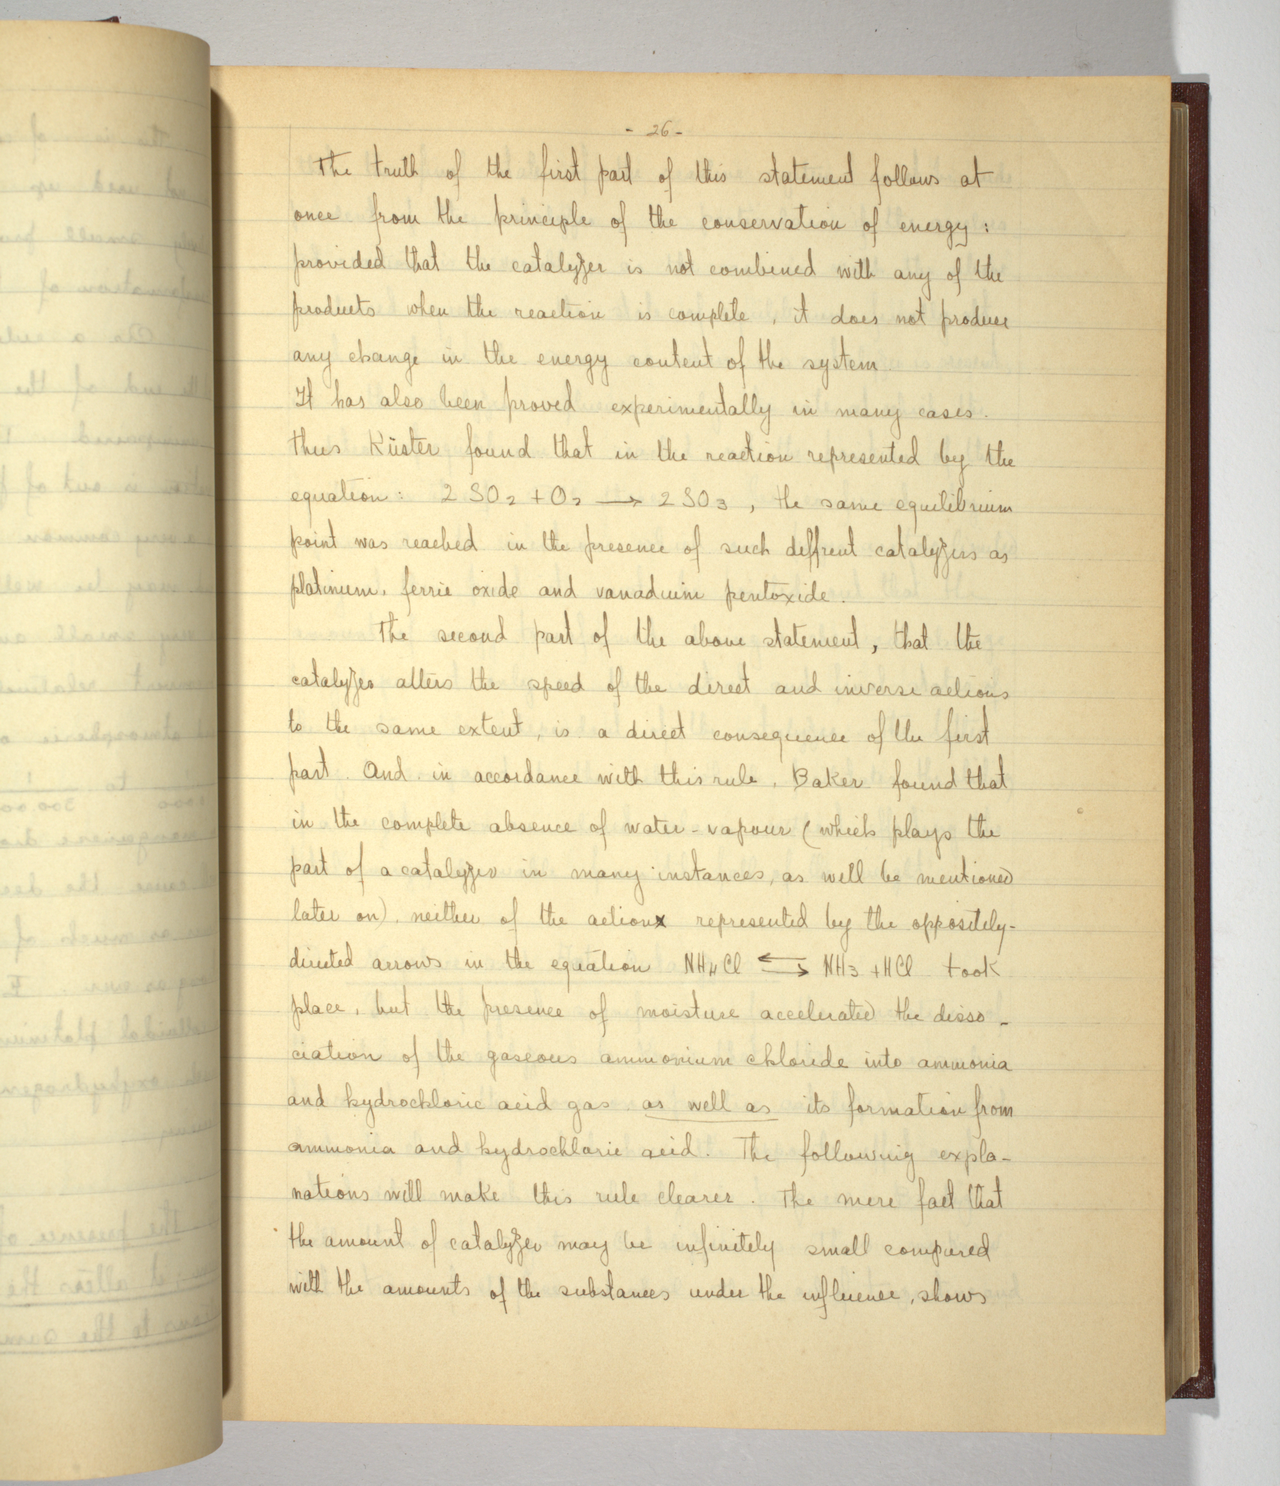 - 26 -
The truth of the first part of this statement follows at
once from the principle of the conservation of energy :
provided that the catalyzer is not combined with any of the
products when the reaction is complete, it does not produce
any change in the energy content of the system
It has also been proved experimentally in many cases.
thus Küster found that in the reaction represented by the
equation: 2 SO2 + O2 → 2 SO3, the same equilibrium
point was reached in the presence of such diffrent catalyzers as
platinum, ferric oxide and vanadium pentoxide.
The second part of the above statement, that the
catalyzer alters the speed of the direct and inverse actions
to the same extent, is a direct consequence of the first
part. And in accordance with this rule, Baker found that
in the complete absence of water-vapour (which plays the
part of a catalyzer in many instances, as well be mentioned
later on), neither of the action represented by the oppositely-
directed arrows in the equation NH4Cl ⇆ NH3 + HCl took
place, but the presence of moisture accelerated the disso-
ciation of the gaseous ammonium chloride into ammonia
and hydrochloric acid gas as well as its formation from
ammonia and hydrochloric acid. The following expla-
nations will make this rule clearer. The mere fact that
the amount of catalyzer may be infinitely small compared
with the amounts of the substances under the influence, shows